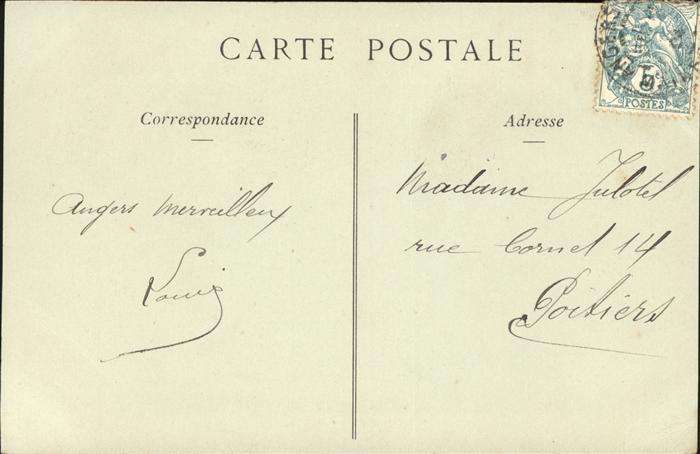 CARTE POSTALE
Correspondance
Angers merveilleux
Louis
Adresse
Madame Julotel
rue Cornet 14
Poitiers
ANGERS
5c
POSTES